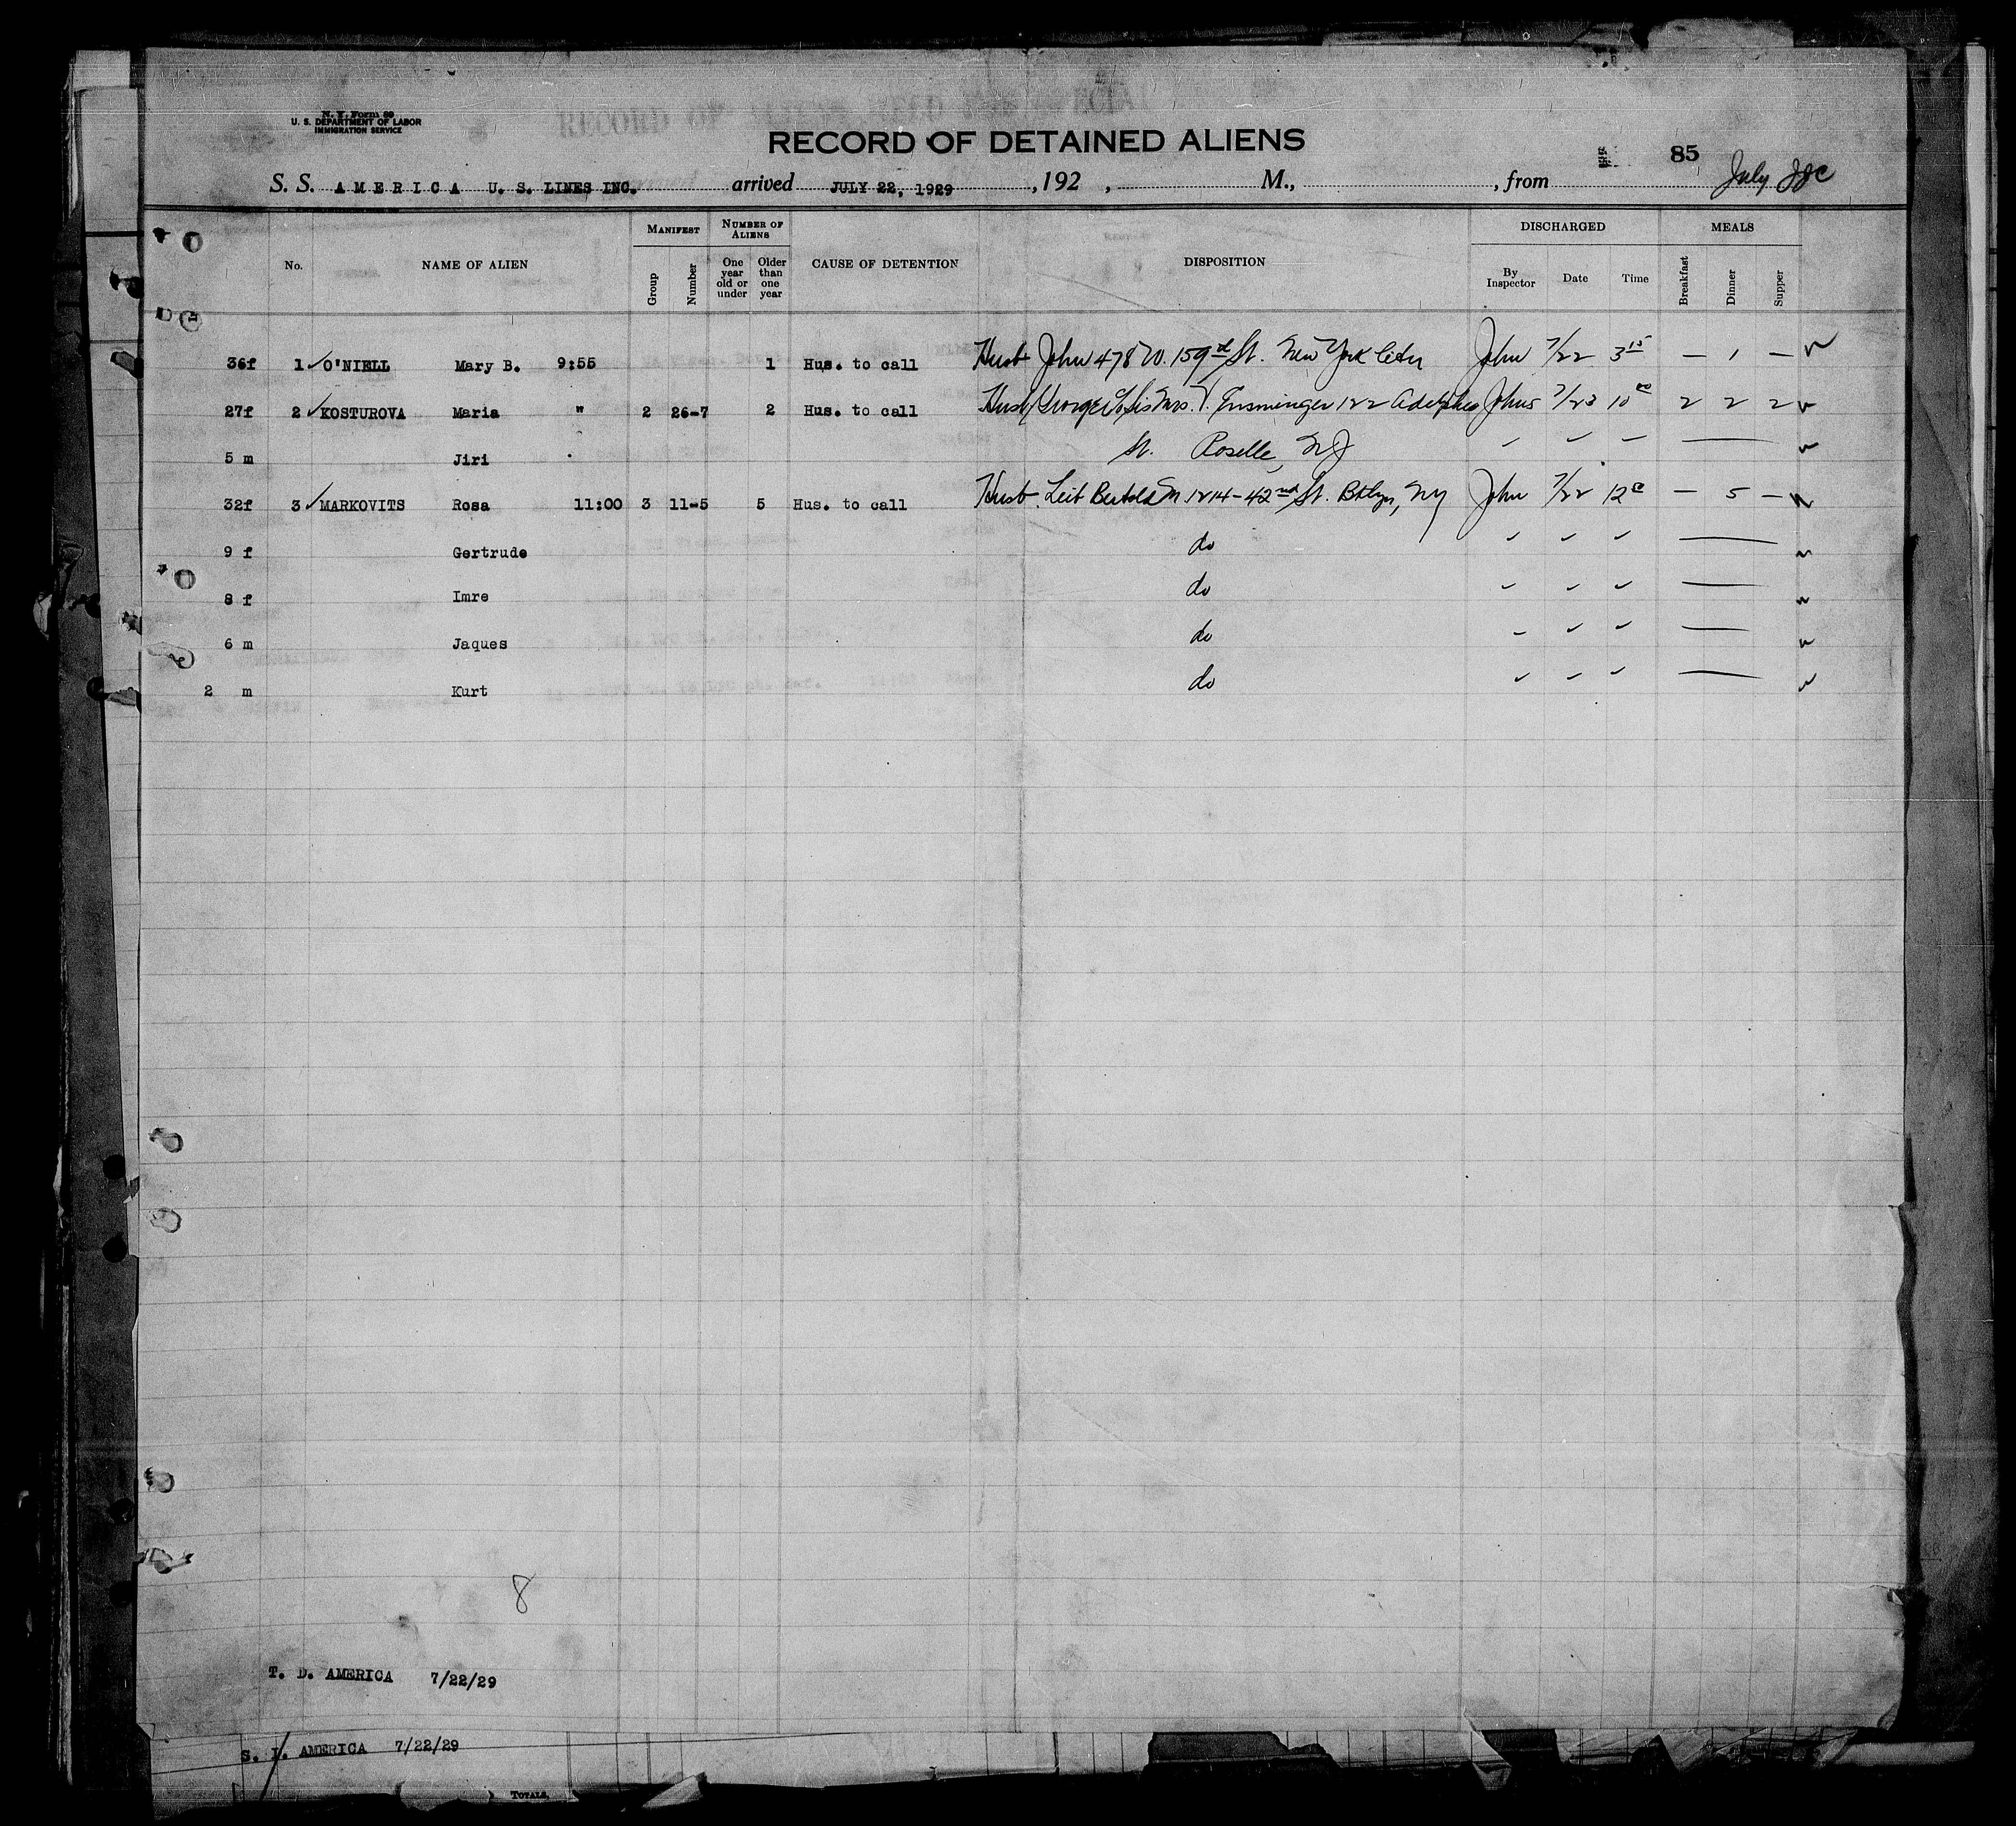 N. Y. Form 89
U. S. DEPARTMENT OF LABOR
IMMIGRATION SERVICE
RECORD OF DETAINED ALIENS
85
S. S. AMERICA U. S. LINES INC. arrived JULY 22, 1929 , 192 , M., , from July
No. NAME OF ALIEN MANIFEST Group Number NUMBER OF ALIENS One year old or under Older than one year CAUSE OF DETENTION DISPOSITION DISCHARGED By Inspector Date Time MEALS Breakfast Dinner Supper
36f 1 ✓ O'NIELL Mary B. 9:55 1 Hus. to call Husb John 478 W. 159th St. New York City John 7/22 3 15 — 1 —
27f 2 ✓ KOSTUROVA Maria " 2 26-7 2 Hus. to call Husb George Mrs. Ensminger 122 Johns 7/23 10 00 2 2 2
5 m Jiri St. Roselle, NJ
32f 3 ✓ MARKOVITS Rosa 11:00 3 11-5 5 Hus. to call Husb. Leib 1214-42nd St. Bklyn, NY John 7/22 12 — 5 —
9 f Gertrude do
8 f Imre do
6 m Jaques do
2 m Kurt do
8
T. D. AMERICA 7/22/29
S. I. AMERICA 7/22/29
TOTALS